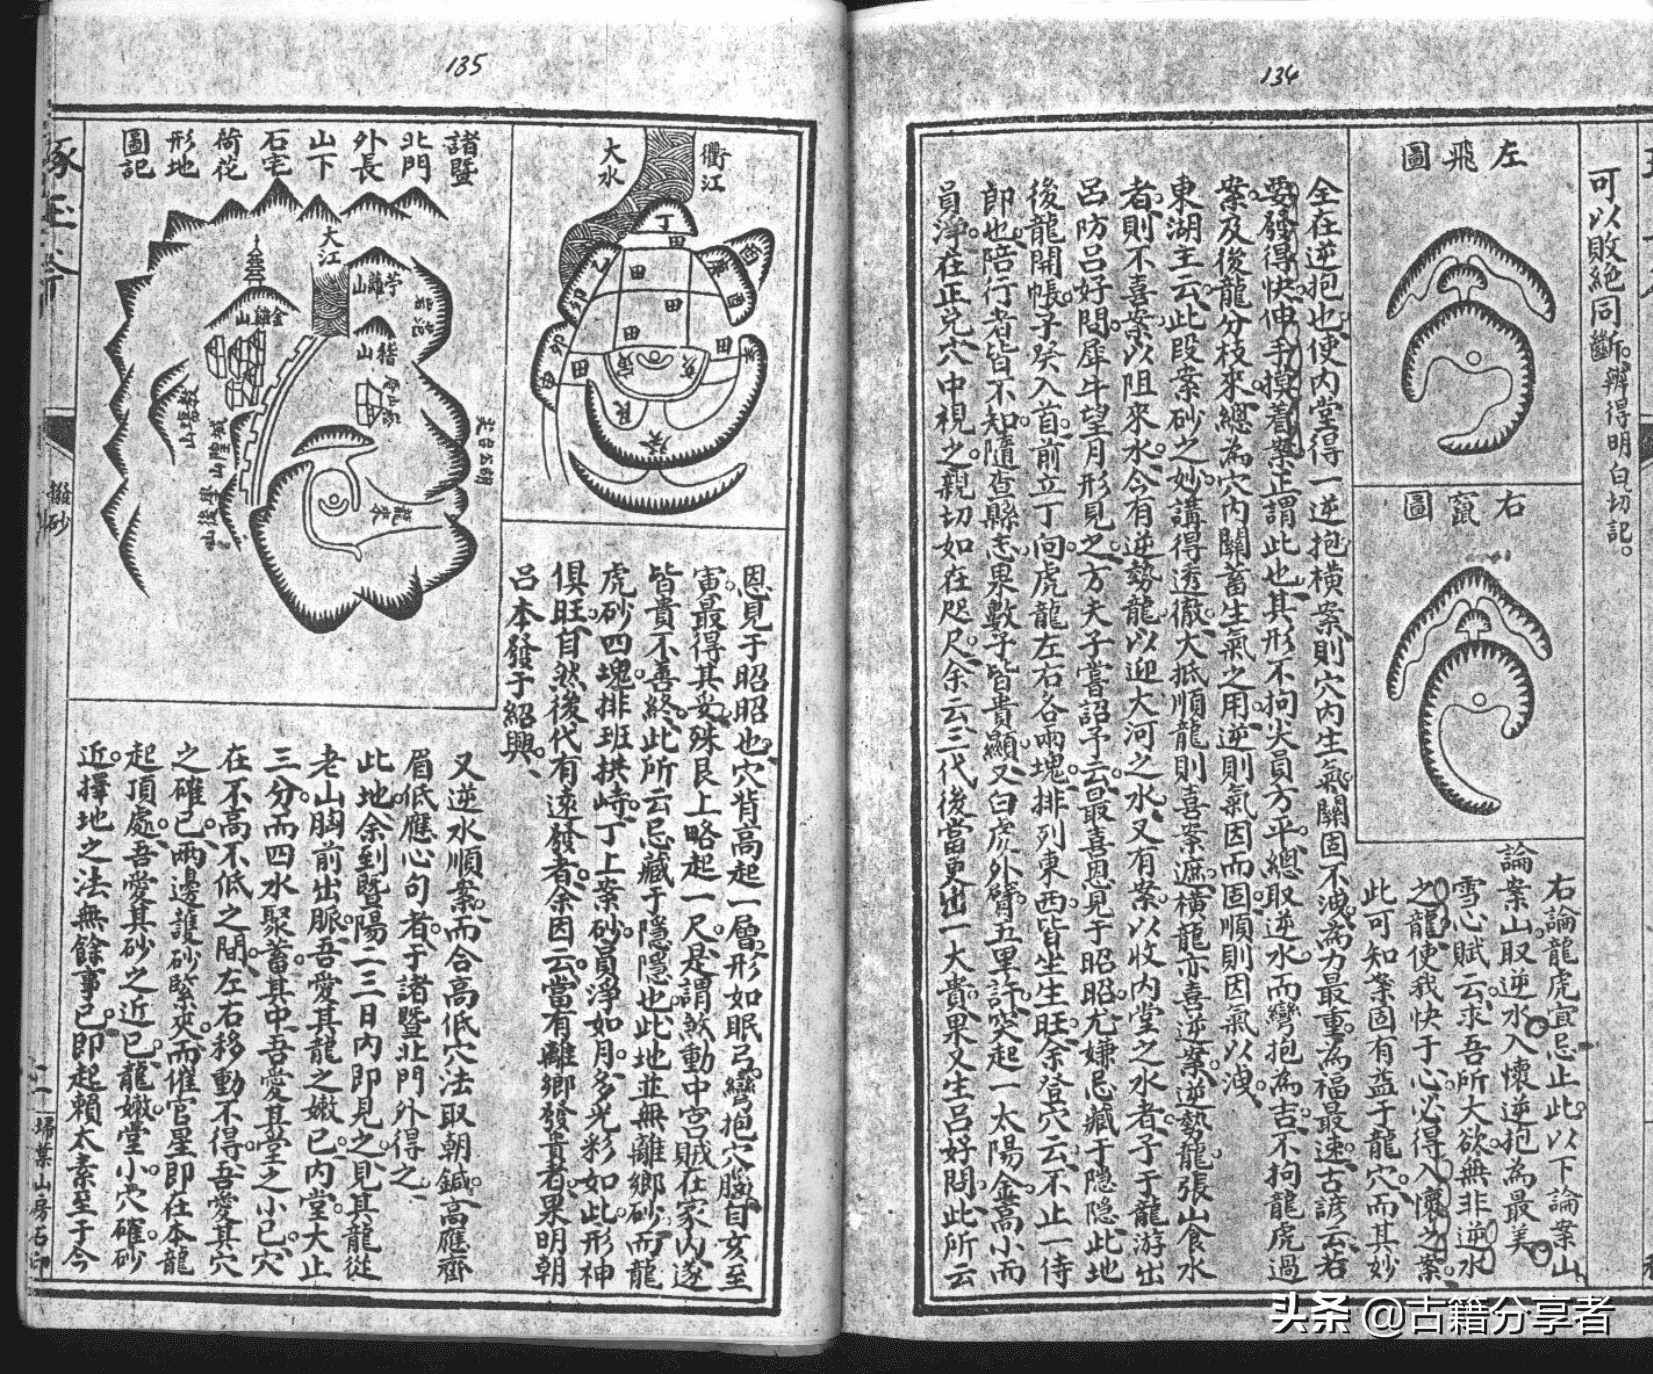 134
可以敗絕同斷。辨得明白。切記。
左飛圖
右竄圖
右論龍虎宜忌止此。以下論案山
論案山取逆水入懷逆抱為最美
雪心賦云求吾所大欲無非逆水
之龍使我快于心必得入懷之案。
此可知案固有益于龍穴。而其妙
全在逆抱也。使內堂得一逆抱橫案。則穴內生氣關固不洩。為力最重。為福最速。古諺云。若
要發得快。伸手摸着案。正謂此也。其形不拘尖員方平。總取逆水而彎抱為吉。不拘龍虎過
案。及後龍分枝來。總為穴內關蓄生氣之用。逆則氣因而固。順則因氣以洩。
東湖主云。此段案砂之妙。講得透徹。大抵順龍則喜案遮。橫龍亦喜逆案。逆勢龍張山食水
者。則不喜案以阻來水。今有逆勢龍以迎大河之水。又有案以收內堂之水者。子于龍游出
呂防呂好問犀牛望月形見之。方夫子嘗詔予云。最喜恩見于昭昭。尤嫌忌藏于隱隱。此地
後龍開帳。子癸入首。前立丁向。虎龍左右各兩塊。排列東西。皆坐生旺。余登穴云。不止一侍
郎也。陪行者皆不知。隨查縣志。果數子皆貴顯。又白虎外臂五里許。突起一太陽金。高小而
員淨。在正兌。穴中視之。親切如在咫尺。余云。三代後當更出一大貴。果又生呂好問。此所云
135
衢江
大水
恩見于昭昭也。穴背高起一層。形如眠弓。彎抱穴腦。自亥至
寅。最得其妥。殊艮上略起一尺。是謂煞動中宮。賊在家內。遂
皆貴不善終。此所云忌藏于隱隱也。此地並無離鄉砂。而龍
虎砂四塊。排班拱峙。丁上案砂。員淨如月。多光彩。如此形神
俱旺。自然後代有遠發者。余因云。當有離鄉發貴者。果明朝
呂本發于紹興。
諸暨
北門
外長
山下
石宅
荷花
形地
圖記
大江
又逆水順案。而合高低穴法取朝鍼。高應齊
眉低應心句者。于諸暨北門外得之。
此地余到暨陽二三日內即見之。見其龍從
老山胸前出脈。吾愛其龍之嫩已。內堂大止
三分。而四水聚蓄其中。吾愛其堂之小已。穴
在不高不低之間。左右移動不得。吾愛其穴
之確已。兩邊護砂緊夾。而催官星即在本龍
起頂處。吾愛其砂之近已。龍嫩。堂小。穴確。砂
近。擇地之法無餘事已。即起賴太素至于今
撥砂
二十
掃葉山房石印
头条 @古籍分享者